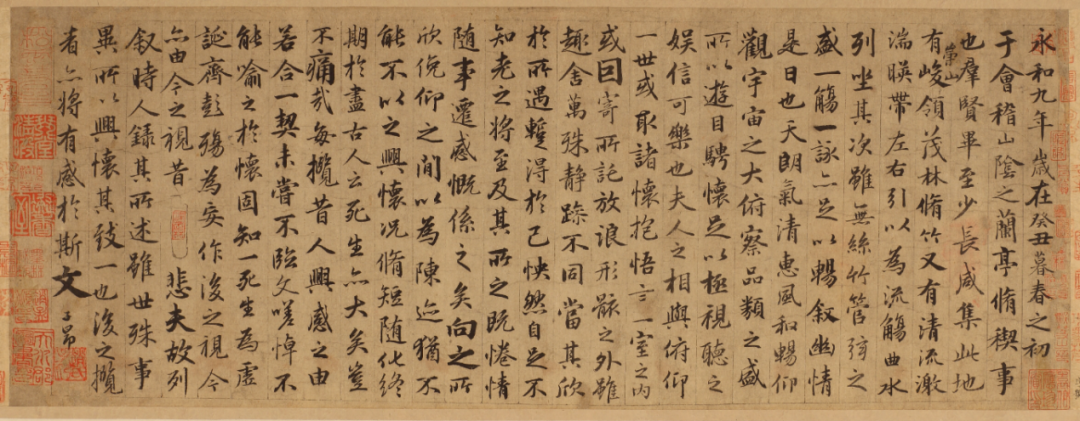 永和九年歲在癸丑暮春之初
于會稽山陰之蘭亭脩稧事
也羣賢畢至少長咸集此地
有崇山峻領茂林脩竹又有清流激
湍暎帶左右引以為流觴曲水
列坐其次雖無絲竹管弦之
盛一觴一詠亦足以暢叙幽情
是日也天朗氣清惠風和暢仰
觀宇宙之大俯察品類之盛
所以遊目騁懷足以極視聽之
娛信可樂也夫人之相與俯仰
一世或取諸懷抱悟言一室之內
或因寄所託放浪形骸之外雖
趣舍萬殊静躁不同當其欣
於所遇蹔得於己怏然自足不
知老之將至及其所之既惓情
隨事遷感慨係之矣向之所
欣俛仰之閒以為陳迹猶不
能不以之興懷況脩短隨化終
期於盡古人云死生亦大矣豈
不痛哉每攬昔人興感之由
若合一契未嘗不臨文嗟悼不
能喻之於懷固知一死生為虛
誕齊彭殤為妄作後之視今
亦由今之視昔 悲夫故列
叙時人錄其所述雖世殊事
異所以興懷其致一也後之攬
者亦將有感於斯文 子昂